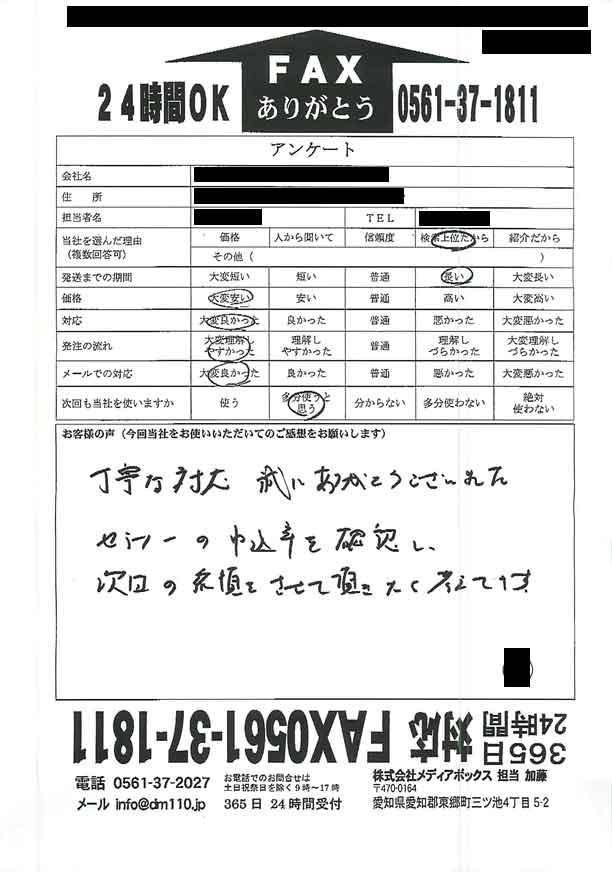 FAX
ありがとう
24時間OK
0561-37-1811
アンケート
会社名
住　所
担当者名 TEL
当社を選んだ理由（複数回答可） 価格 人から聞いて 信頼度 検索上位だから 紹介だから
その他（ ）
発送までの期間 大変短い 短い 普通 長い 大変長い
価格 大変安い 安い 普通 高い 大変高い
対応 大変良かった 良かった 普通 悪かった 大変悪かった
発注の流れ 大変理解しやすかった 理解しやすかった 普通 理解しづらかった 大変理解しづらかった
メールでの対応 大変良かった 良かった 普通 悪かった 大変悪かった
次回も当社を使いますか 使う 多分使うと思う 分からない 多分使わない 絶対使わない
お客様の声（今回当社をお使いいただいてのご感想をお願いします）
丁寧な対応 誠にありがとうございました
セミナーの申込率を確認し、
次回の依頼をさせて頂きたく考えてます
365日 24時間 対応 FAX0561-37-1811
電話 0561-37-2027
メール info@dm110.jp
お電話でのお問合せは
土日祝祭日を除く9時〜17時
365日 24時間受付
株式会社メディアボックス 担当 加藤
〒470-0164
愛知県愛知郡東郷町三ツ池4丁目5-2